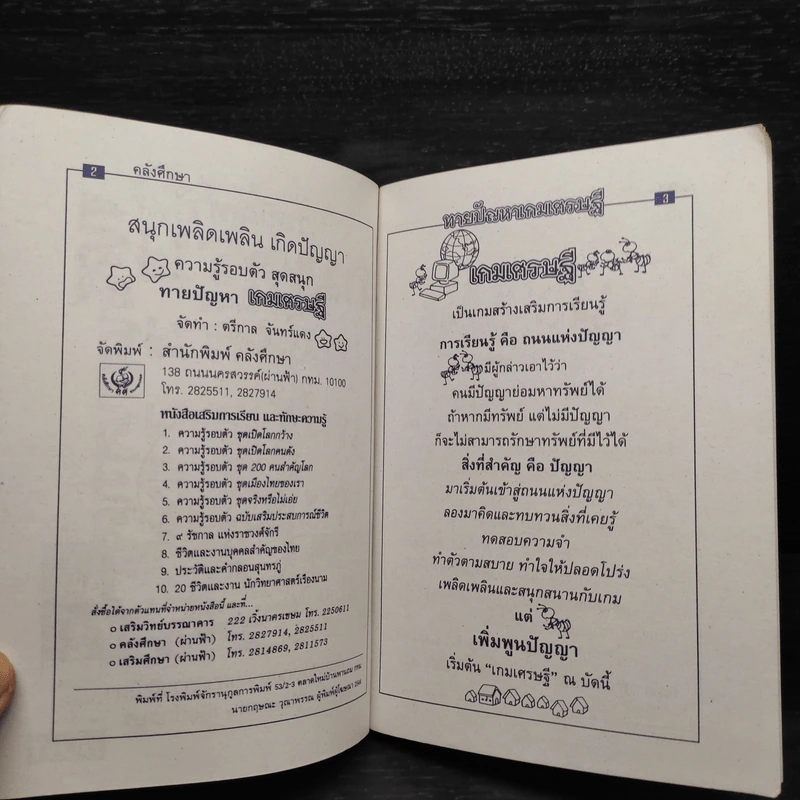 2 คลังศึกษา
สนุกเพลิดเพลิน เกิดปัญญา
ความรู้รอบตัว สุดสนุก
ทายปัญหา เกมเศรษฐี
จัดทำ : ตรีกาล จันทร์แดง
จัดพิมพ์ : สำนักพิมพ์ คลังศึกษา
138 ถนนนครสวรรค์(ผ่านฟ้า) กทม. 10100
โทร. 2825511, 2827914
หนังสือเสริมการเรียน และทักษะความรู้
1. ความรู้รอบตัว ชุดเปิดโลกกว้าง
2. ความรู้รอบตัว ชุดเปิดโลกคนดัง
3. ความรู้รอบตัว ชุด 200 คนสำคัญโลก
4. ความรู้รอบตัว ชุดเมืองไทยของเรา
5. ความรู้รอบตัว ชุดจริงหรือไม่เอ่ย
6. ความรู้รอบตัว ฉบับเสริมประสบการณ์ชีวิต
7. ๙ รัชกาล แห่งราชวงศ์จักรี
8. ชีวิตและงานบุคคลสำคัญของไทย
9. ประวัติและคำกลอนสุนทรภู่
10. 20 ชีวิตและงาน นักวิทยาศาสตร์เรืองนาม
สั่งซื้อได้จากตัวแทนที่จำหน่ายหนังสือนี้ และที่...
o เสริมวิทย์บรรณาคาร 222 เวิ้งนาครเขษม โทร. 2250611
o คลังศึกษา (ผ่านฟ้า) โทร. 2827914, 2825511
o เสริมศึกษา (ผ่านฟ้า) โทร. 2814869, 2811573
พิมพ์ที่ โรงพิมพ์จักรานุกูลการพิมพ์ 53/2-3 ตลาดใหม่บ้านพานถม กทม.
นายกฤษณะ วุฒาพรรณ ผู้พิมพ์ผู้โฆษณา
ทายปัญหาเกมเศรษฐี 3
เกมเศรษฐี
เป็นเกมสร้างเสริมการเรียนรู้
การเรียนรู้ คือ ถนนแห่งปัญญา
มีผู้กล่าวเอาไว้ว่า
คนมีปัญญาย่อมหาทรัพย์ได้
ถ้าหากมีทรัพย์ แต่ไม่มีปัญญา
ก็จะไม่สามารถรักษาทรัพย์ที่มีไว้ได้
สิ่งที่สำคัญ คือ ปัญญา
มาเริ่มต้นเข้าสู่ถนนแห่งปัญญา
ลองมาคิดและทบทวนสิ่งที่เคยรู้
ทดสอบความจำ
ทำตัวตามสบาย ทำใจให้ปลอดโปร่ง
เพลิดเพลินและสนุกสนานกับเกม
แต่
เพิ่มพูนปัญญา
เริ่มต้น "เกมเศรษฐี" ณ บัดนี้